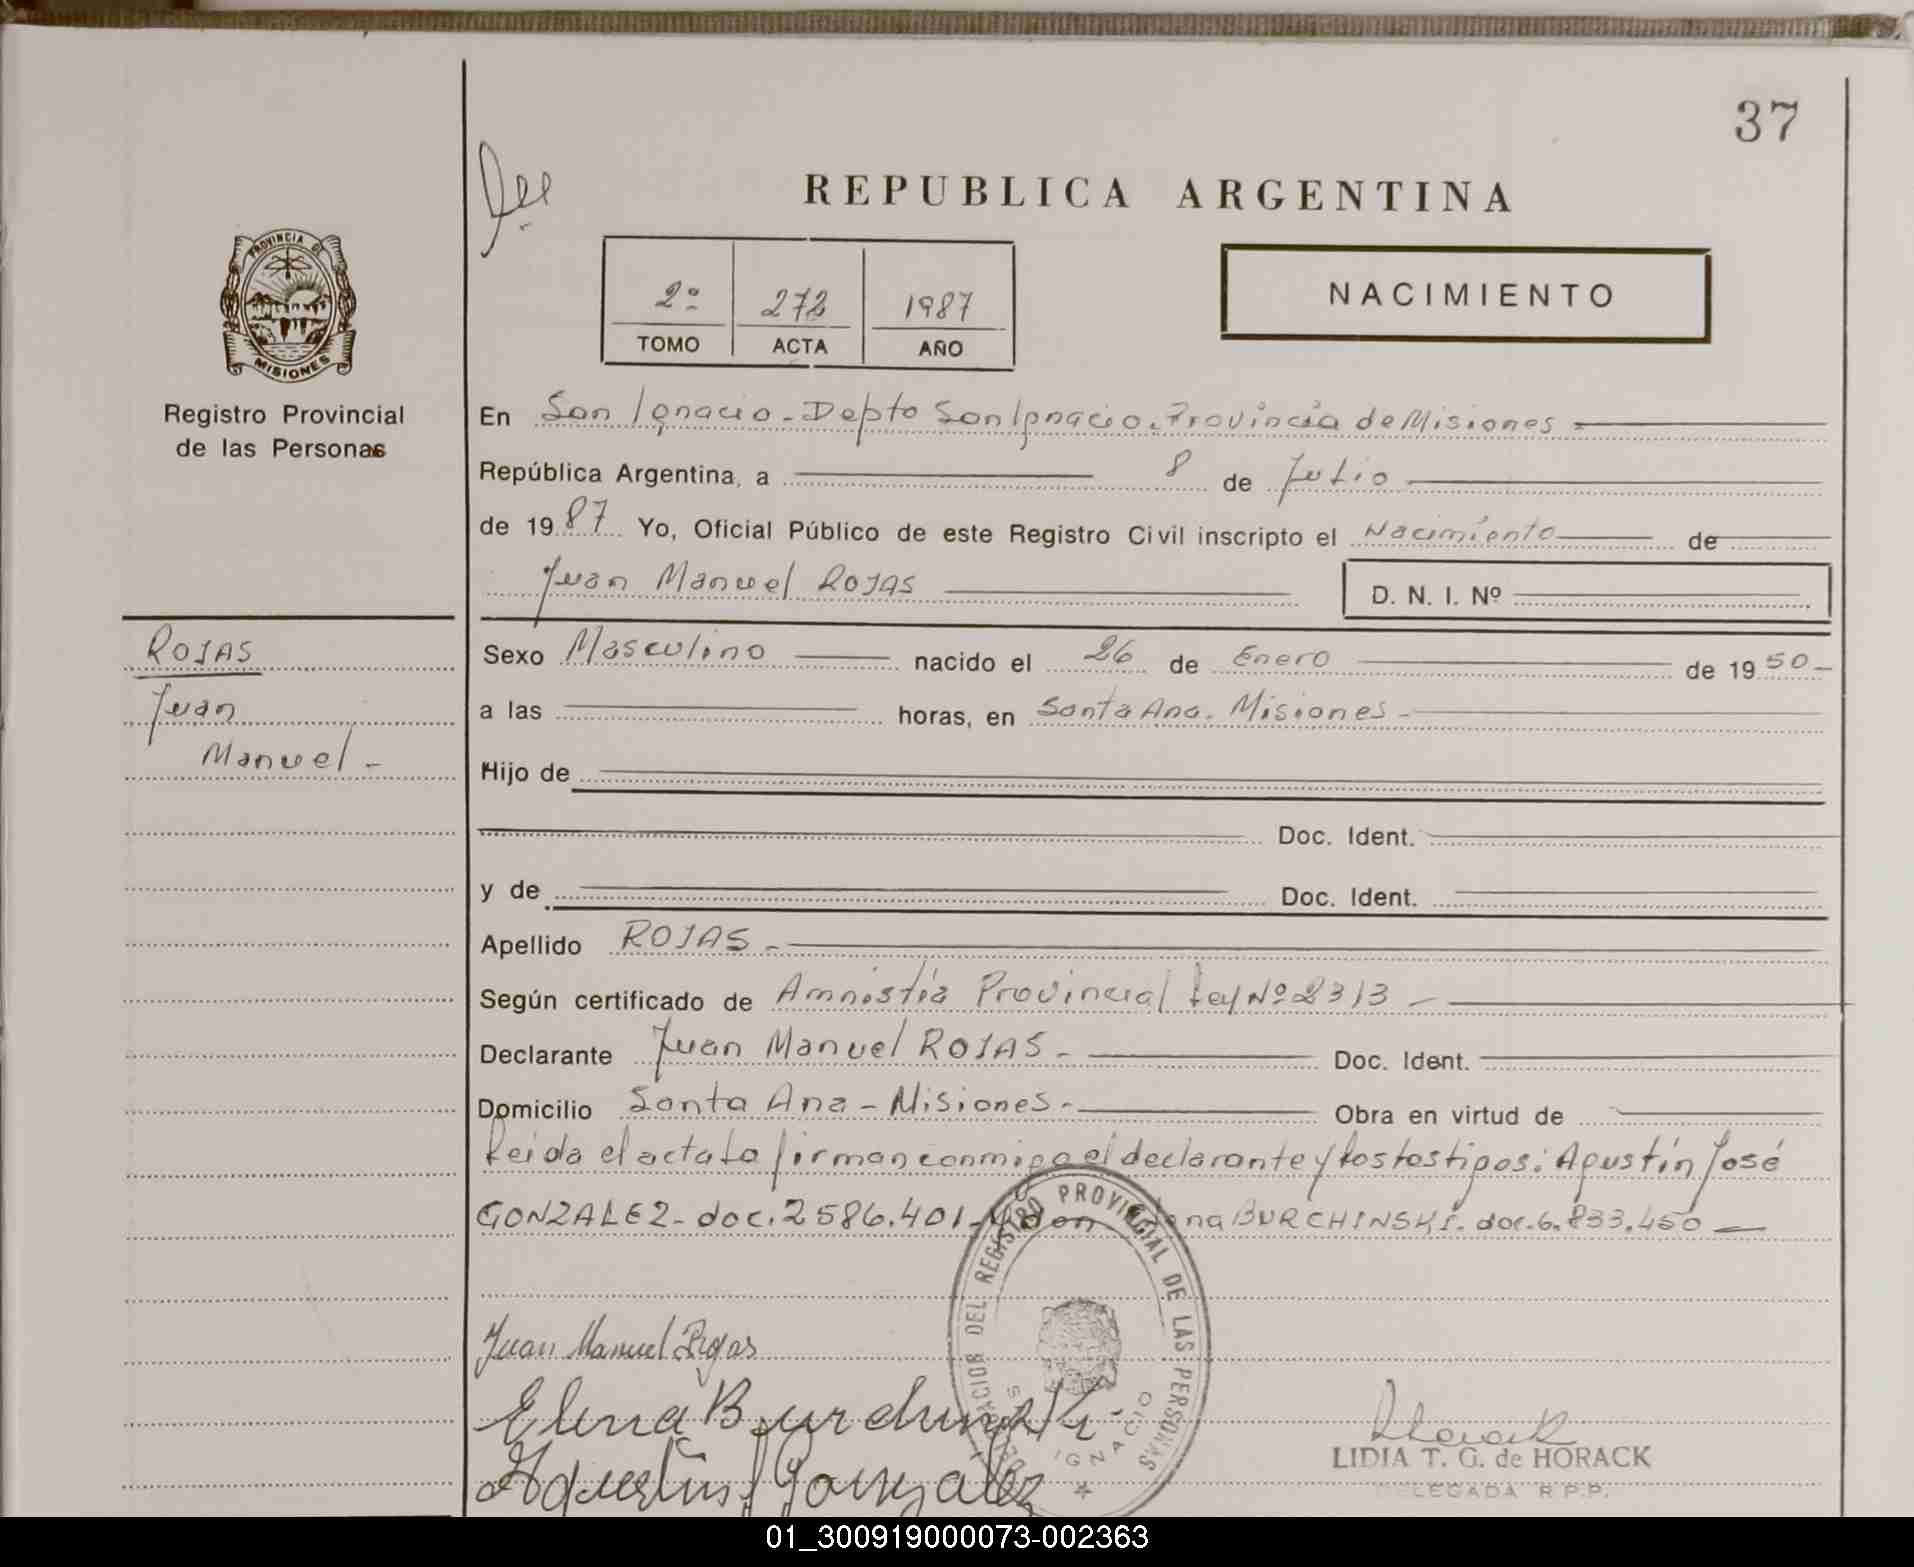 37
REPUBLICA ARGENTINA
PROVINCIA DE
MISIONES
Registro Provincial
de las Personas
2º 272 1987
TOMO ACTA AÑO
NACIMIENTO
En San Ignacio - Depto San Ignacio. Provincia de Misiones
República Argentina, a 8 de Julio
de 1987 Yo, Oficial Público de este Registro Civil inscripto el Nacimiento de
Juan Manuel ROJAS D. N. I. Nº
ROJAS
Juan
Manuel -
Sexo Masculino nacido el 26 de Enero de 1950 -
a las horas, en Santa Ana. Misiones -
Hijo de
Doc. Ident.
y de Doc. Ident.
Apellido ROJAS -
Según certificado de Amnistía Provincial Ley Nº 2313 -
Declarante Juan Manuel ROJAS - Doc. Ident.
Domicilio Santa Ana - Misiones - Obra en virtud de
Leida el acta la firman conmigo el declarante y los testigos: Agustín José
GONZALEZ - doc. 2586.401 - y don BURCHINSKI. doc. 6.833.450
DEL REGISTRO PROVINCIAL DE LAS PERSONAS
IGNACIO
Juan Manuel Rojas
Elena Burchinski
Agustin J Gonzalez
Horack
LIDIA T. G. de HORACK
DELEGADA R.P.P.
01_300919000073-002363